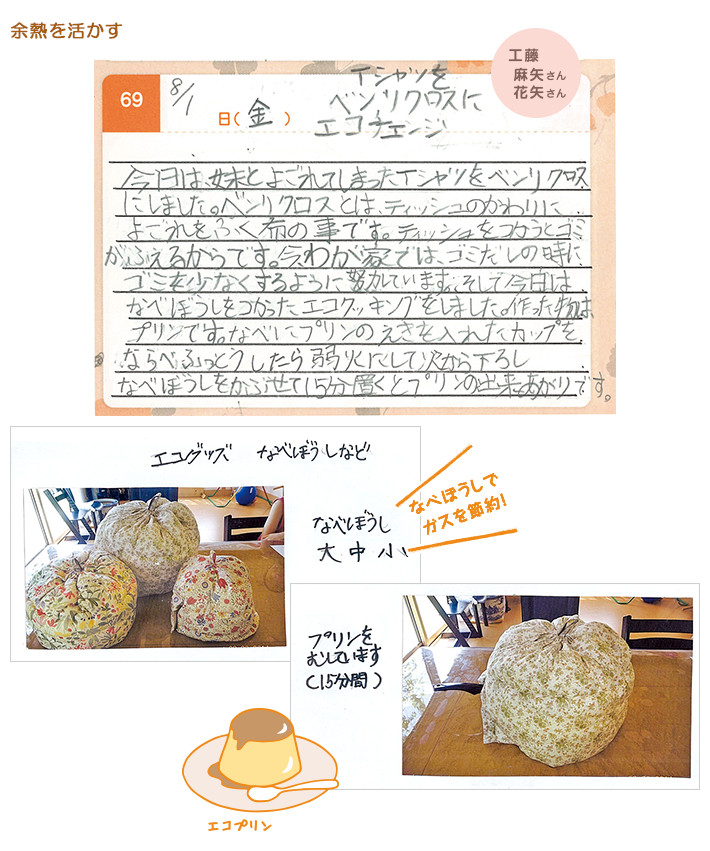 余熱を活かす
工藤
麻矢さん
花矢さん
69
8/1
日(金)
Tシャツを
ベンリクロスに
エコチェンジ
今日は、妹とよごれてしまったTシャツをベンリクロス
にしました。ベンリクロスとは、ティッシュのかわりに
よごれをふく布の事です。ティッシュをつかうとゴミ
がふえるからです。今わが家では、ゴミだしの時に
ゴミを少なくするように努力しています。そして今日は
なべぼうしをつかったエコクッキングをしました。作った物は
プリンです。なべにプリンのえきを入れたカップを
ならべふっとうしたら弱火にして火から下ろし
なべぼうしをかぶせて15分置くとプリンの出来あがりです。
エコグッズ なべぼうしなど
なべぼうし
大 中 小
なべぼうしで
ガスを節約!
プリンを
むしています
(15分間)
エコプリン